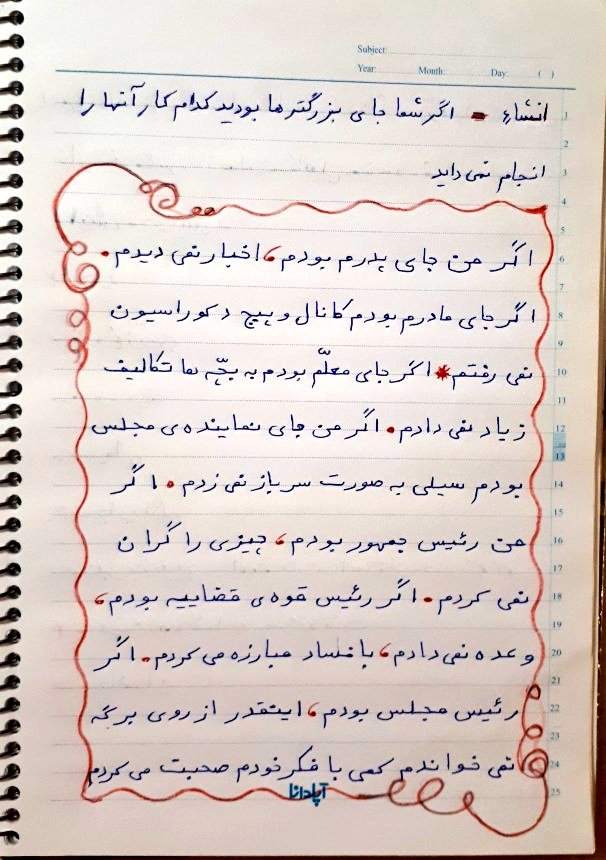 Subject:
Year: Month: Day: ( )
انشاء - اگر شما جای بزرگترها بودید کدام کار آنها را
انجام نمی داید
اگر من جای پدرم بودم، اخبار نمی دیدم.
اگر جای مادرم بودم کانال و پیج دکوراسیون
نمی رفتم* اگر جای معلّم بودم به بچّه ها تکالیف
زیاد نمی دادم. اگر من جای نماینده ی مجلس
بودم سیلی به صورت سرباز نمی زدم. اگر
من رئیس جمهور بودم، چیزی را گران
نمی کردم. اگر رئیس قوه ی قضاییه بودم،
وعده نمی دادم، با فساد مبارزه می کردم. اگر
رئیس مجلس بودم، اینقدر از روی برگه
نمی خواندم کمی با فکر خودم صحبت می کردم
آپادانا
1
2
3
4
5
6
7
8
9
10
11
12
13
14
15
16
17
18
19
20
21
22
23
24
25